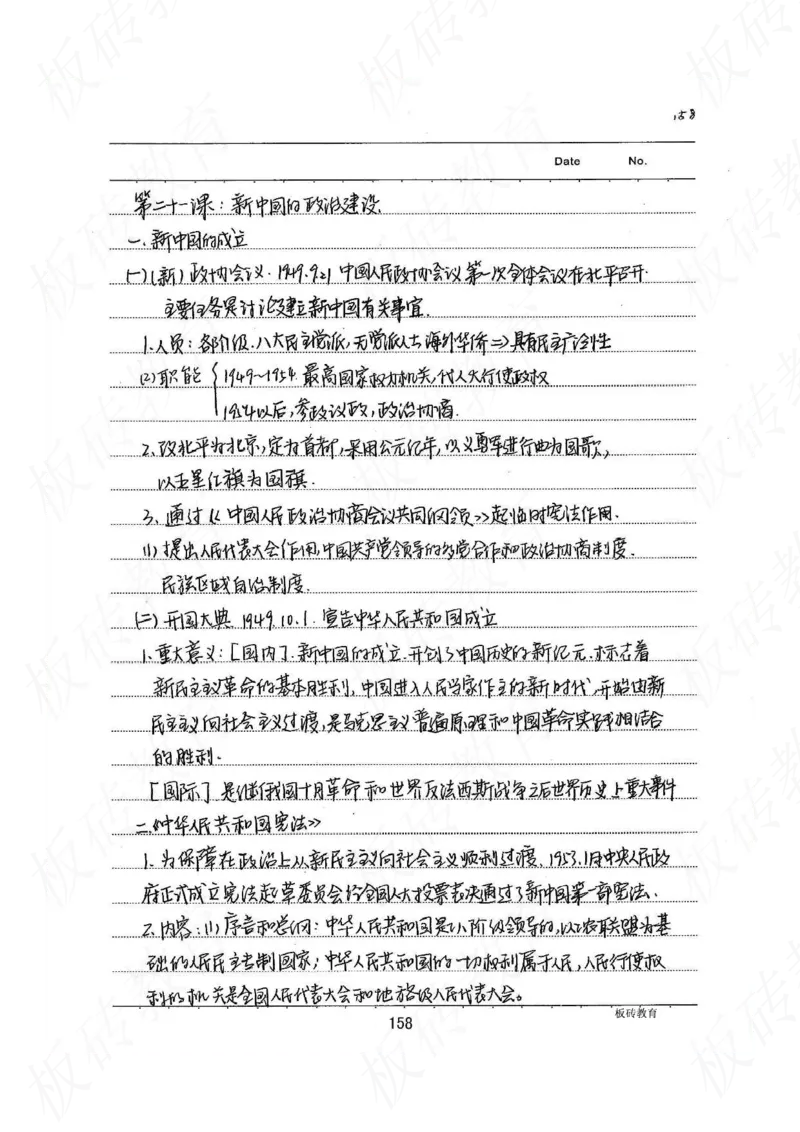 158
Date No.
第二十一课：新中国的政治建设
一、新中国的成立
(一)(新)政协会议．1949.9.21 中国人民政协会议第一次全体会议在北平召开．
主要任务是讨论建立新中国有关事宜．
1.人员：各阶级、八大民主党派,无党派人士,海外华侨⇒具有民主广泛性
(2)职能 {1949~1954.最高国家权力机关,代人大行使政权
1954以后,参政议政,政治协商．
2.改北平为北京,定为首都,采用公元纪年,以义勇军进行曲为国歌,
以五星红旗为国旗．
3、通过《中国人民政治协商会议共同纲领》起临时宪法作用．
(1)提出人民代表大会作用,中国共产党领导的多党合作和政治协商制度．
民族区域自治制度．
(二)开国大典 1949.10.1.宣告中华人民共和国成立
1.重大意义：[国内].新中国的成立.开创了中国历史的新纪元.标志着
新民主主义革命的基本胜利,中国进入人民当家作主的新时代,开始由新
民主主义向社会主义过渡,是马克思主义普遍原理和中国革命实践相结合
的胜利．
[国际]是继俄国十月革命和世界反法西斯战争之后世界历史上重大事件
二.《中华人民共和国宪法》
1.为保障在政治上从新民主主义向社会主义顺利过渡．1953.1月中央人民政
府正式成立宪法起草委员会经全国人大投票表决通过了新中国第一部宪法．
2.内容：(1)序言和总纲：中华人民共和国是工人阶级领导的,以工农联盟为基
础的人民民主专制国家；中华人民共和国的一切权利属于人民,人民行使权
利的机关是全国人民代表大会和地方各级人民代表大会。
板砖教育
158